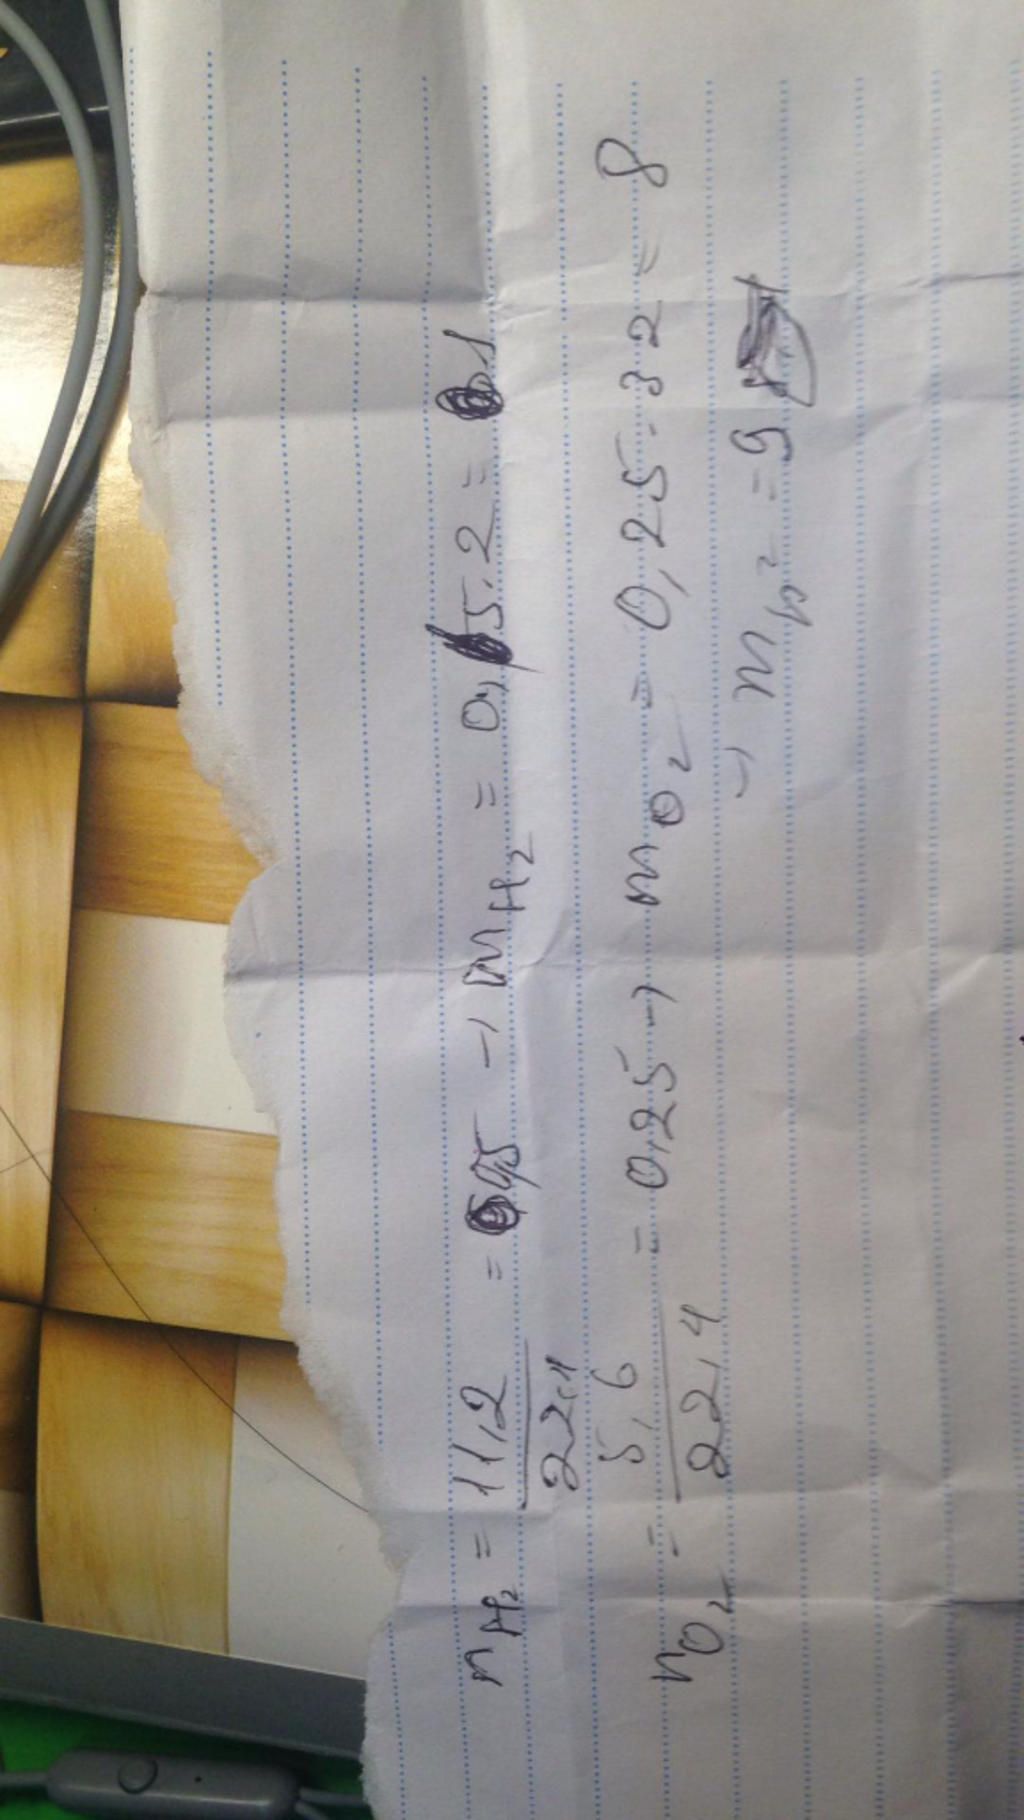 nH2 = 11,2/22,4 = 0,5 → mH2 = 0,5.2 = 1
nO2 = 5,6/22,4 = 0,25 → mO2 = 0,25.32 = 8
→ mh2 = 9